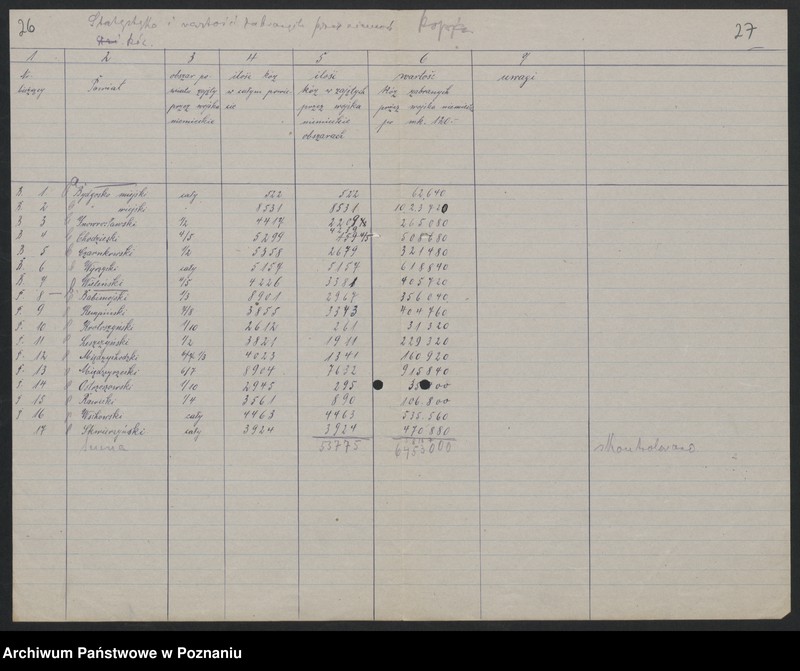 26
27
Statystyka i wartość zabranych przez niemców kopja
kóz.
1 2 3 4 5 6 7
Powiat
obszar powiatu zajęty przez wojska niemieckie
ilość kóz w całym powiecie
ilość kóz w zajętych przez wojska niemieckie obszarach
wartość kóz zabranych przez wojska niemieck po mk. 120.-
uwagi
1 Bydgosko miejski cały 522 522 62,640
2 " wiejski 8531 8531 1023720
3 Inowrocławski 1/2 4417 265080
4 Chodzieski 4/5 5299 508680
5 Czarnkowski 1/2 5358 2679 321480
6 Wyrzyski cały 5157 5157 618840
7 Wieleński 4/5 4226 3381 405720
8 Babimojski 1/3 8901 2967 356040
9 Kempiński 7/8 3855 3373 404760
10 Krotoszyński 1/10 2612 261 31320
11 Leszczyński 1/2 3821 1911 229320
12 Międzychodzki 1/3 4023 1341 160920
13 Międzyrzecki 6/7 8904 7632 915840
14 Odrzeczowski 1/10 2945 295
15 Rawicki 1/4 3561 890 106.800
16 Wschowski cały 4463 4463 535.560
17 Skwierzyński cały 3924 3924 470880
Suma 53775 6453000
Archiwum Państwowe w Poznaniu